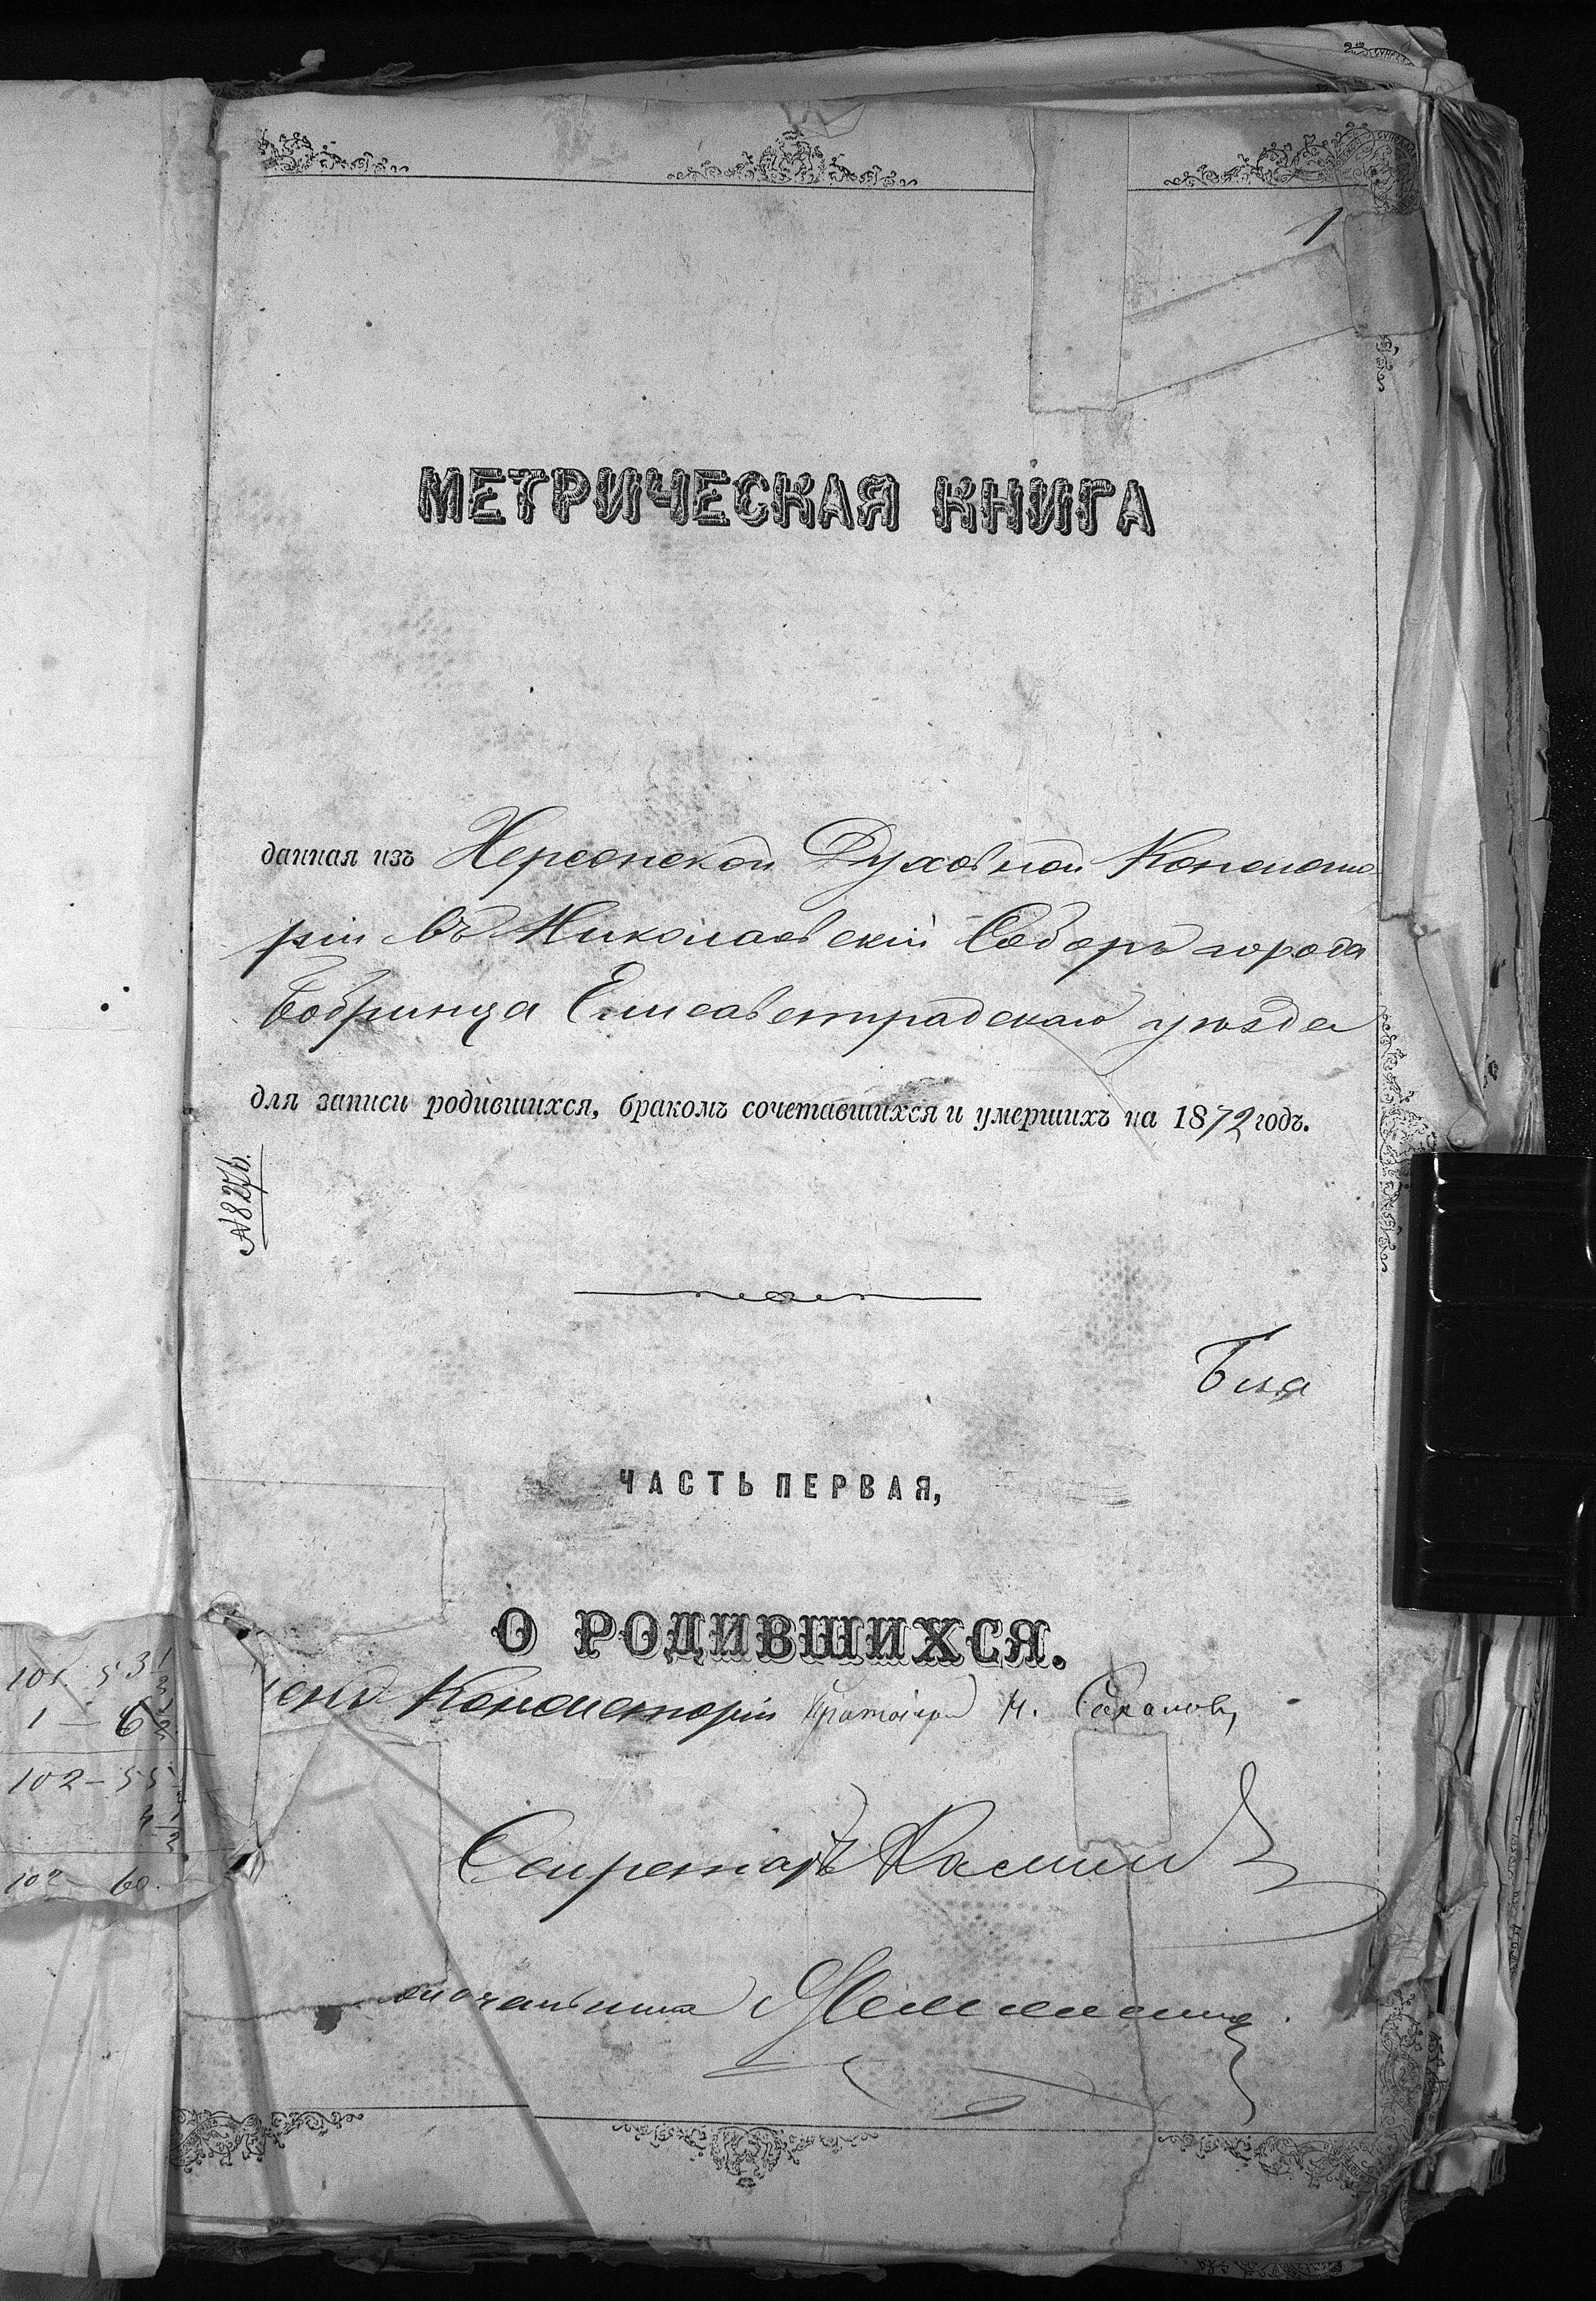 1
МЕТРИЧЕСКАЯ КНИГА
данная изъ Херсонской Духовной Консисто
ріи въ Николаевскій Соборъ города
Бобринца Елисаветградскаго уѣзда
для записи родившихся, бракомъ сочетавшихся и умершихъ на 1872 годъ.
№ 8276.
ЧАСТЬ ПЕРВАЯ,
О РОДИВШИХСЯ.
ленъ Консисторіи Протоіерей
Секретарь
оначальника
101. 53
1 — 6
102 — 55
102 60.